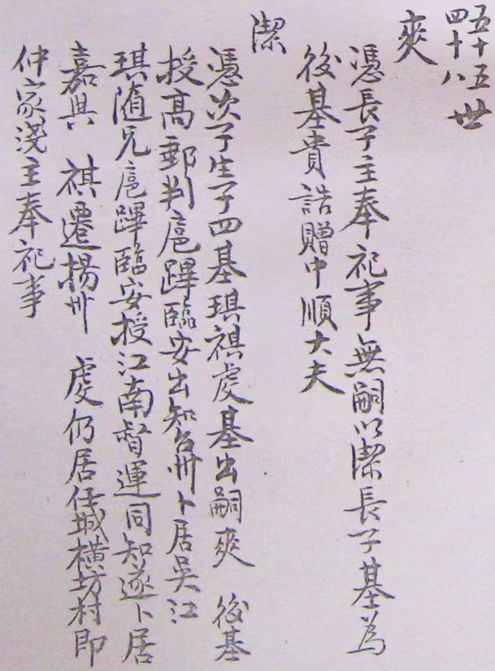 五十五
四十八世
奭
憑長子主奉祀事無嗣以潔長子基為
後基貴誥贈中順大夫
潔
憑次子生子四基琪祺虔基出嗣奭後基
授高郵判扈蹕臨安出知台州卜居吳江
琪隨兄扈蹕臨安授江南督運同知遂卜居
嘉興 祺遷揚州 虔仍居任城橫坊村即
仲家淺主奉祀事